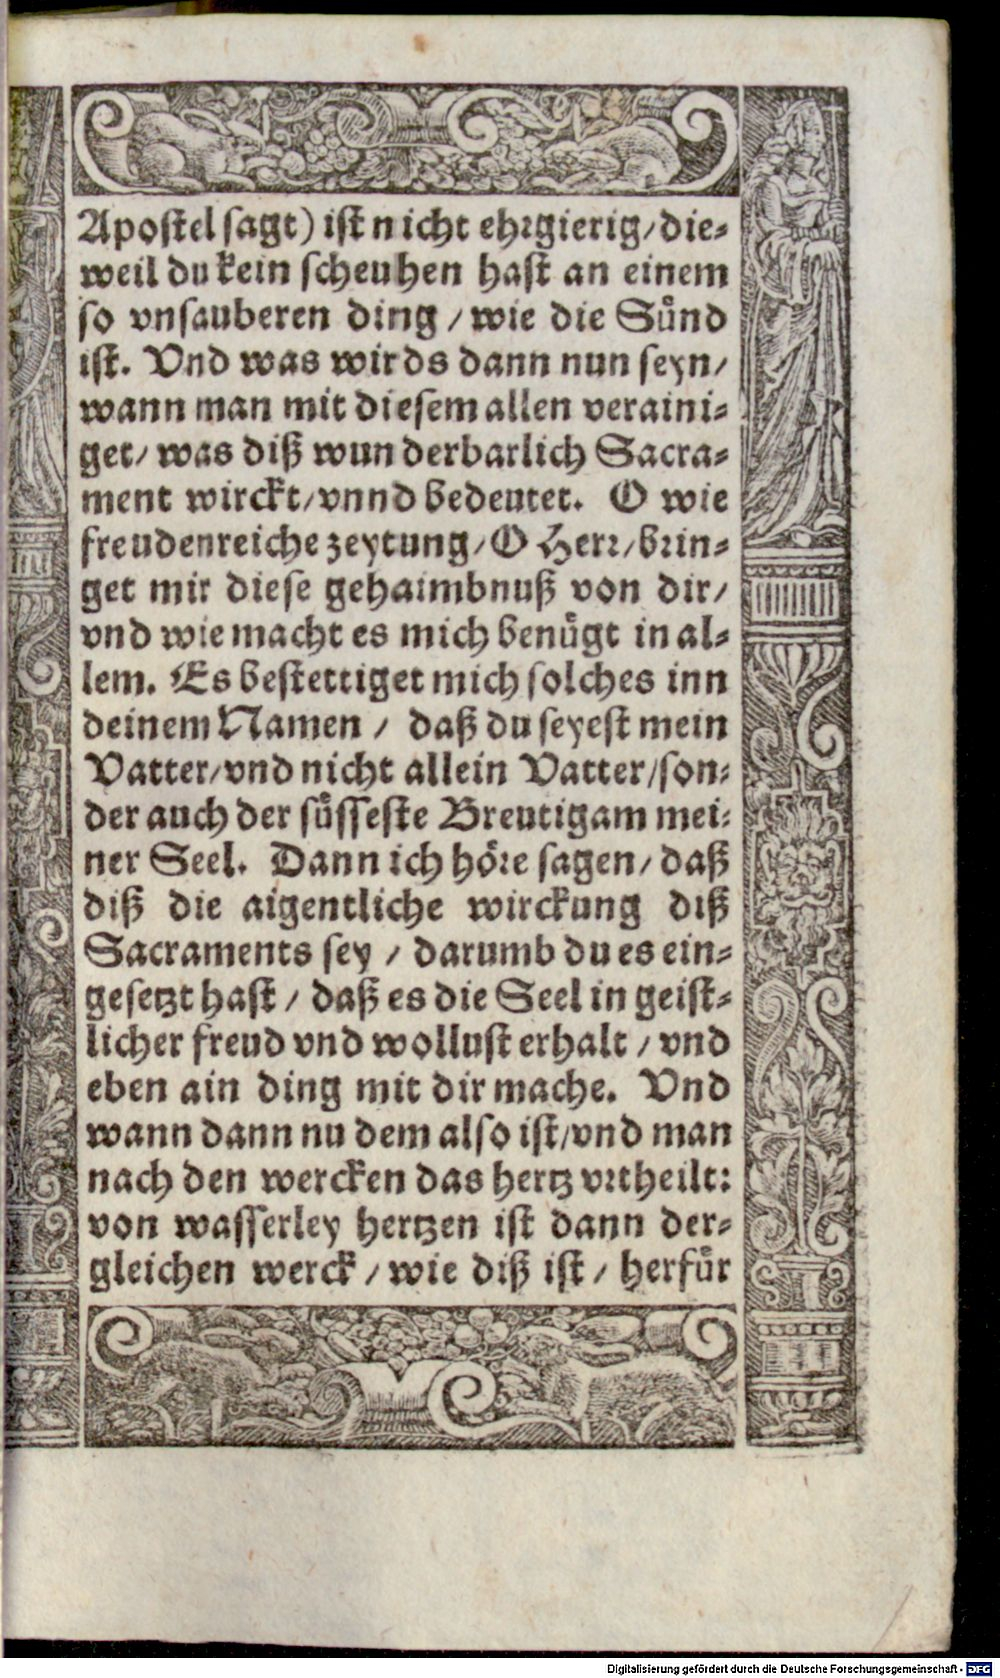 Apostel sagt) ist nicht ehrgierig / die⸗
weil du kein scheuhen hast an einem
so vnsauberen ding / wie die Suͤnd
ist. Vnd was wirds dann nun seyn /
wann man mit diesem allen veraini⸗
get / was diß wunderbarlich Sacra⸗
ment wirckt / vnnd bedeutet. O wie
freudenreiche zeytung / O Herr / brin⸗
get mir diese gehaimbnuß von dir /
vnd wie macht es mich benuͤgt in al⸗
lem. Es bestettiget mich solches inn
deinem Namen / daß du seyest mein
Vatter / vnd nicht allein Vatter / son⸗
der auch der suͤsseste Breutigam mei⸗
ner Seel. Dann ich hoͤre sagen / daß
diß die aigentliche wirckung diß
Sacraments sey / darumb du es ein⸗
gesetzt hast / daß es die Seel in geist⸗
licher freud vnd wollust erhalt / vnd
eben ain ding mit dir mache. Vnd
wann dann nu dem also ist / vnd man
nach den wercken das hertz vrtheilt:
von wasserley hertzen ist dann der⸗
gleichen werck / wie diß ist / herfuͤr
Digitalisierung gefördert durch die Deutsche Forschungsgemeinschaft - DFG